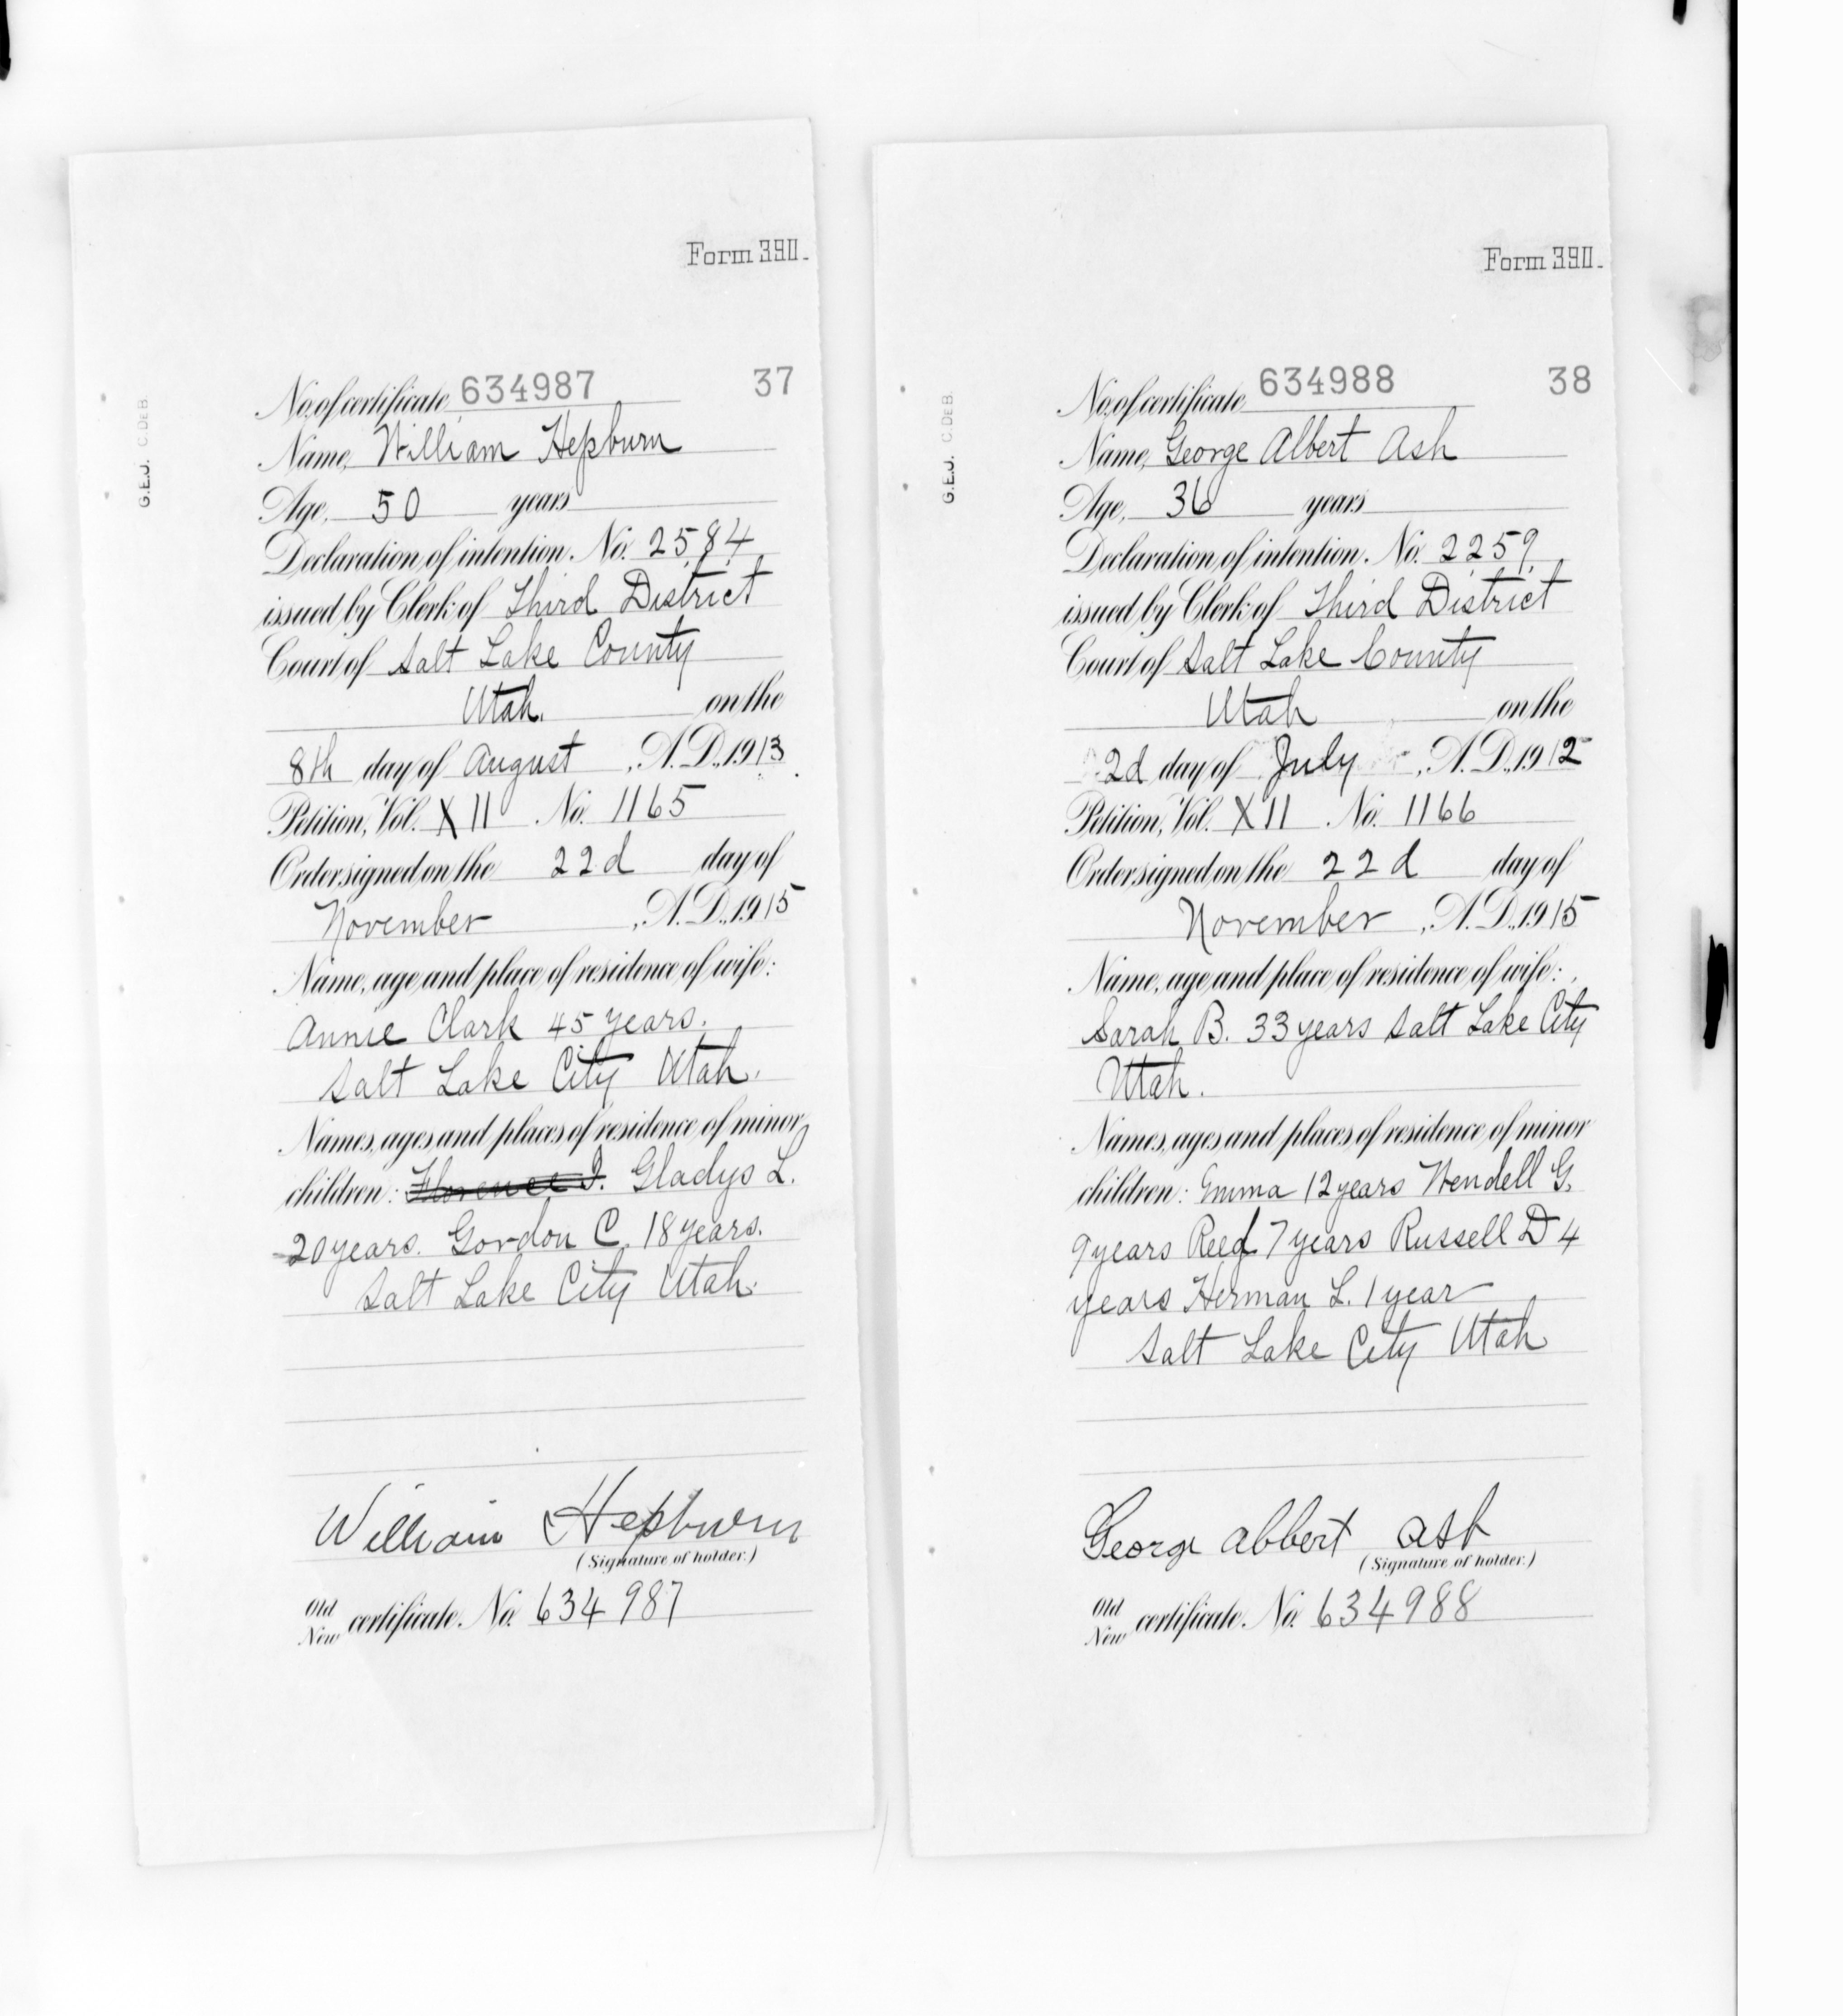 Form 390.
No. of certificate 634987 37
Name, William Hepburn
Age, 50 years
Declaration of intention. No. 2584
issued by Clerk of Third District
Court of Salt Lake County
Utah. on the
8th day of August, A.D., 1913
Petition, Vol. XII No. 1165
Order signed on the 22d day of
November, A.D., 1915
Name, age and place of residence of wife:
Annie Clark 45 years.
Salt Lake City Utah.
Names, ages and places of residence of minor
children: Florence I. Gladys L.
20 years. Gordon C. 18 years.
Salt Lake City Utah.
William Hepburn
(Signature of holder.)
Old
New certificate. No. 634987
G.E.J. C.DEB.
Form 390.
No. of certificate 634988 38
Name, George Albert Ash
Age, 36 years
Declaration of intention. No. 2259
issued by Clerk of Third District
Court of Salt Lake County
Utah on the
2d day of July, A.D., 1912
Petition, Vol. XII No. 1166
Order signed on the 22d day of
November, A.D., 1915
Name, age and place of residence of wife:
Sarah B. 33 years Salt Lake City
Utah.
Names, ages and places of residence of minor
children: Emma 12 years Wendell G.
9 years Reed 7 years Russell D 4
years Herman L. 1 year
Salt Lake City Utah
George Albert Ash
(Signature of holder.)
Old
New certificate. No. 634988
G.E.J. C.DEB.